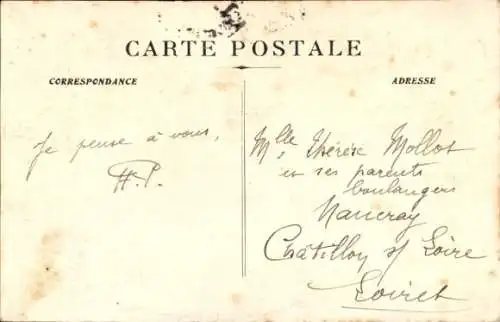 CARTE POSTALE
CORRESPONDANCE
ADRESSE
Je pense à vous,
H.P.
Mlle Thérèse Mollot
et ses parents
boulangers
Nancray
Châtillon s/ Loire
Loiret